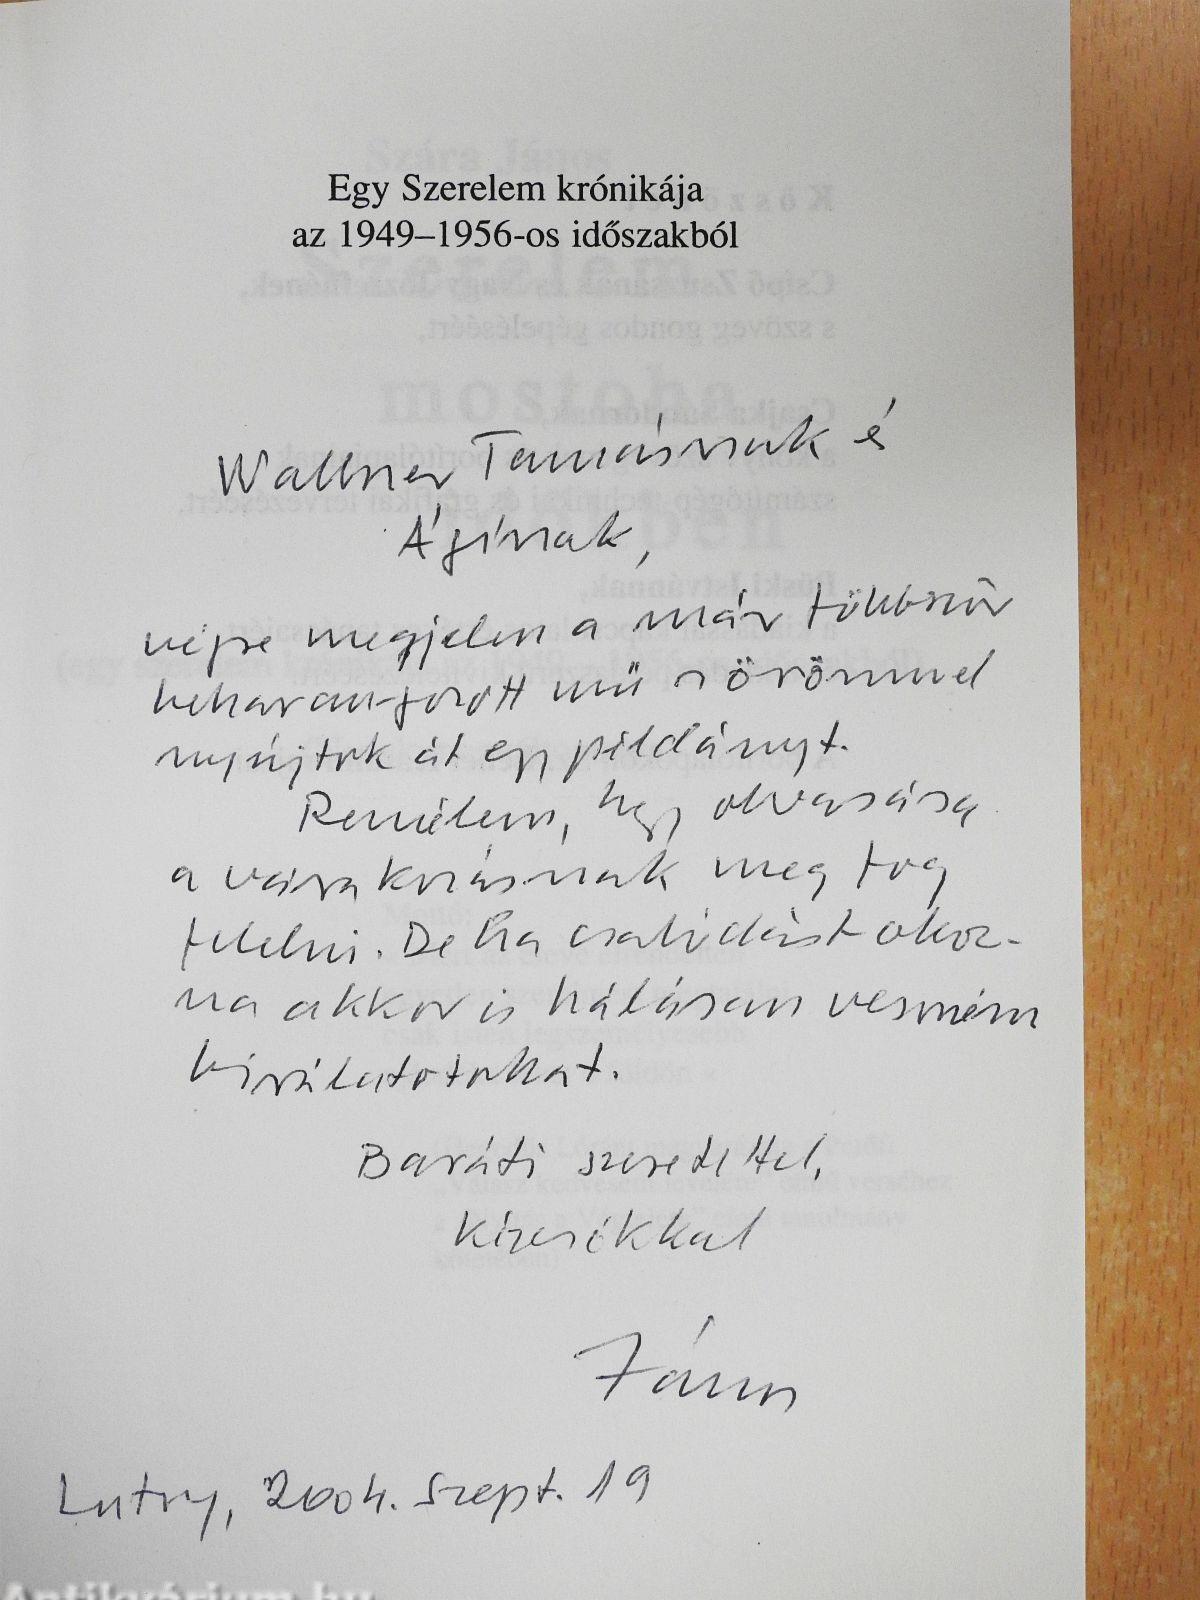 Egy Szerelem krónikája
az 1949–1956-os időszakból
Wallner Tamásnak é
Áginak,
végre megjelen a már többször
beharangozott mű s örömmel
nyújtok át egy példányt.
Remélem, hogy olvasása
a várakozásnak meg fog
felelni. De ha csalódást okoz-
na akkor is hálásan venném
bírálatotokat.
Baráti szeretettel,
kézcsókkal
János
Lutry, 2004. Szept. 19
Antikvárium.hu